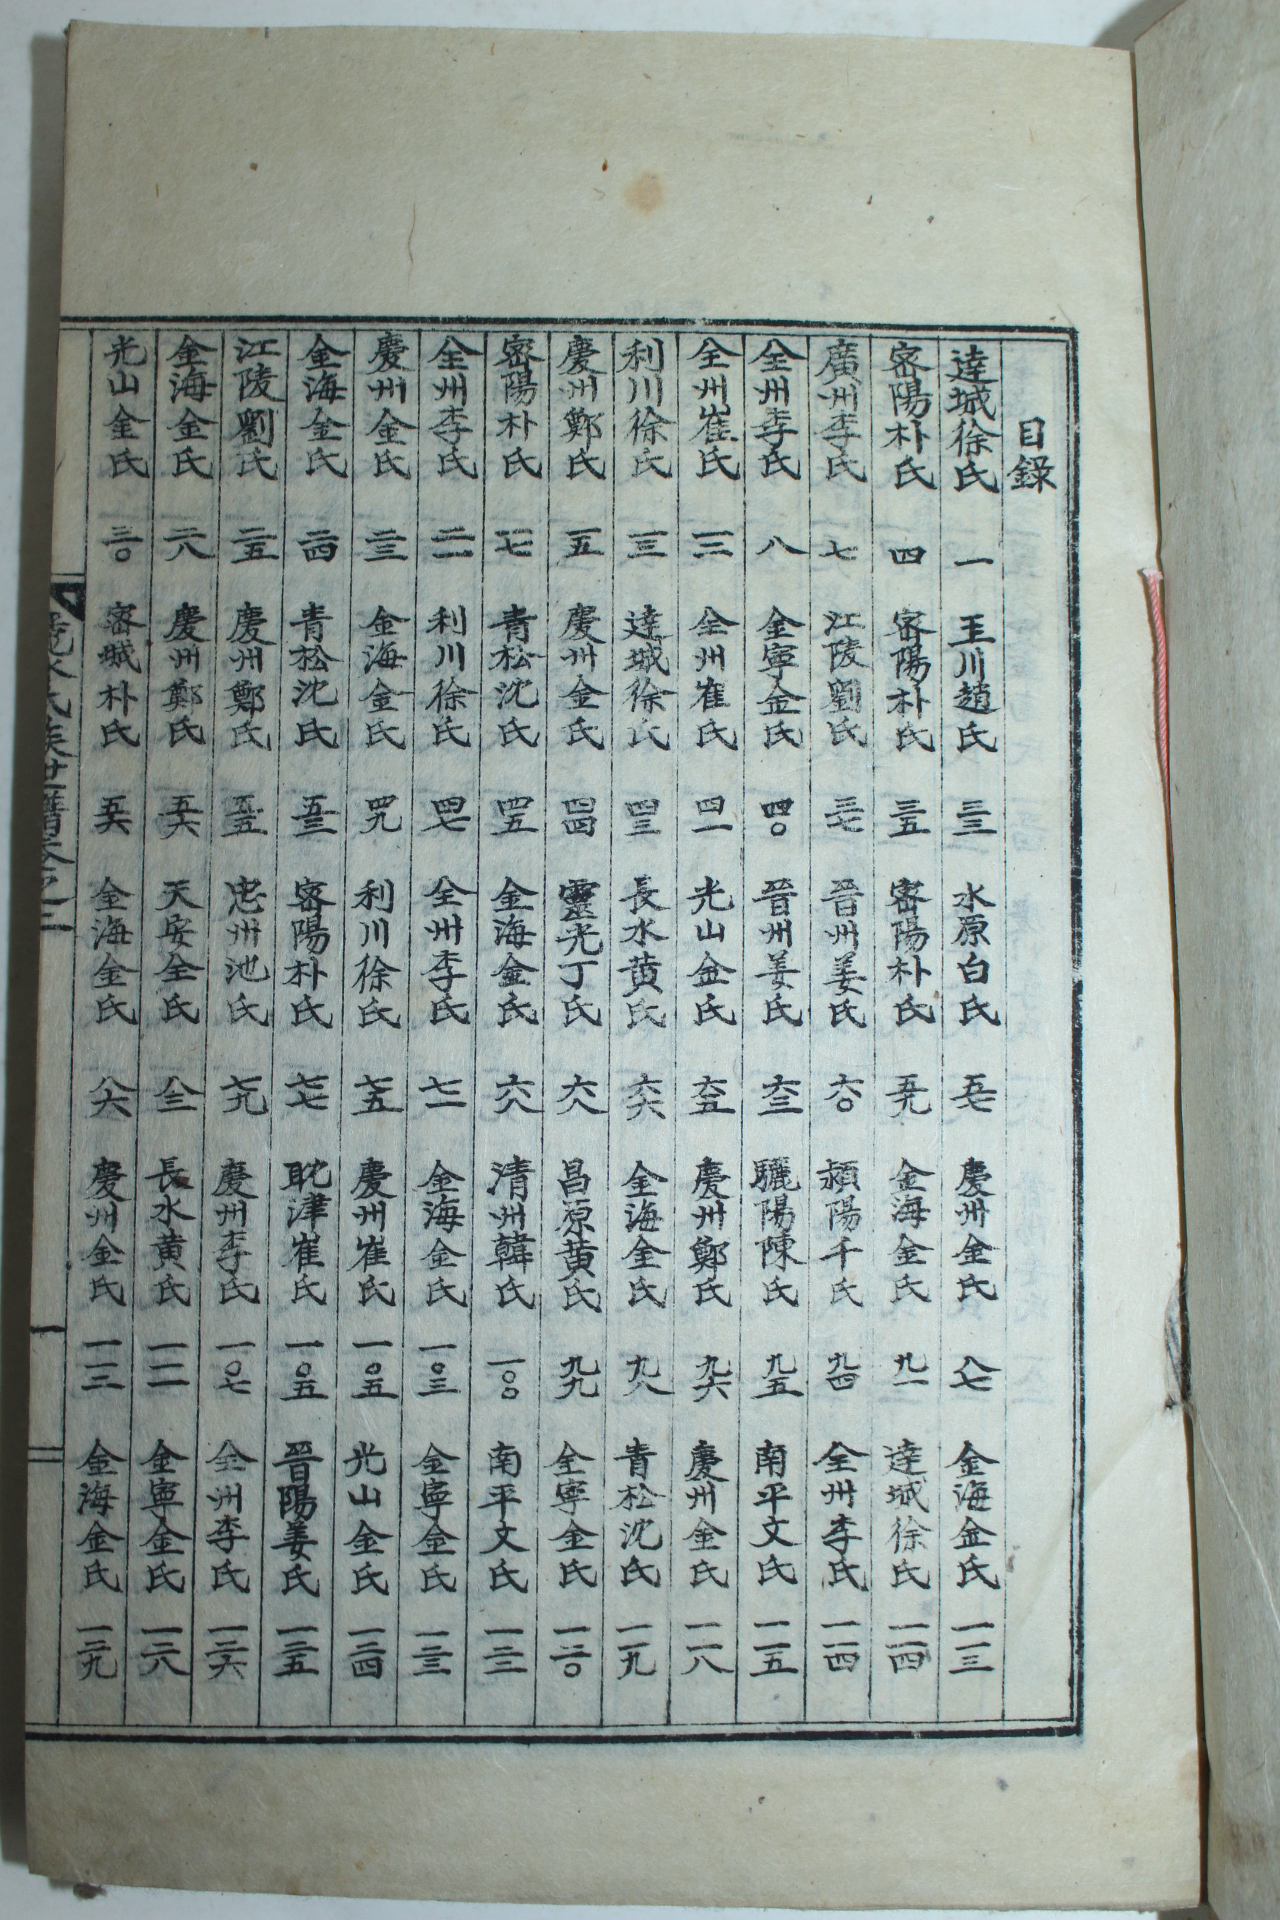 目錄
達城徐氏 一 王川趙氏 三三 水原白氏 五七 慶州金氏 八七 金海金氏 一一三
密陽朴氏 四 密陽朴氏 三五 密陽朴氏 五九 金海金氏 九一 達城徐氏 一一四
廣州李氏 七 江陵劉氏 三七 晉州姜氏 六〇 潁陽千氏 九四 全州李氏 一一四
全州李氏 八 金寧金氏 四〇 晉州姜氏 六三 驪陽陳氏 九五 南平文氏 一一五
全州崔氏 一二 全州崔氏 四一 光山金氏 六五 慶州鄭氏 九六 慶州金氏 一一八
利川徐氏 一三 達城徐氏 四三 長水黃氏 六六 金海金氏 九八 青松沈氏 一一九
慶州鄭氏 一五 慶州金氏 四四 靈光丁氏 六八 昌原黃氏 九九 金寧金氏 一二〇
密陽朴氏 一七 青松沈氏 四五 金海金氏 六八 清州韓氏 一〇〇 南平文氏 一二二
全州李氏 二一 利川徐氏 四七 全州李氏 七一 金海金氏 一〇三 金寧金氏 一二三
慶州金氏 二三 金海金氏 四九 利川徐氏 七五 慶州崔氏 一〇五 光山金氏 一二四
金海金氏 二四 青松沈氏 五三 密陽朴氏 七七 耽津崔氏 一〇五 晉陽姜氏 一二五
江陵劉氏 二五 慶州鄭氏 五五 忠州池氏 七九 慶州李氏 一〇七 全州李氏 一二六
金海金氏 二八 慶州鄭氏 五六 天安全氏 八二 長水黃氏 一一一 金寧金氏 一二八
光山金氏 三〇 密城朴氏 五六 金海金氏 八六 慶州金氏 一一二 金海金氏 一二九
氏族世譜卷之 一